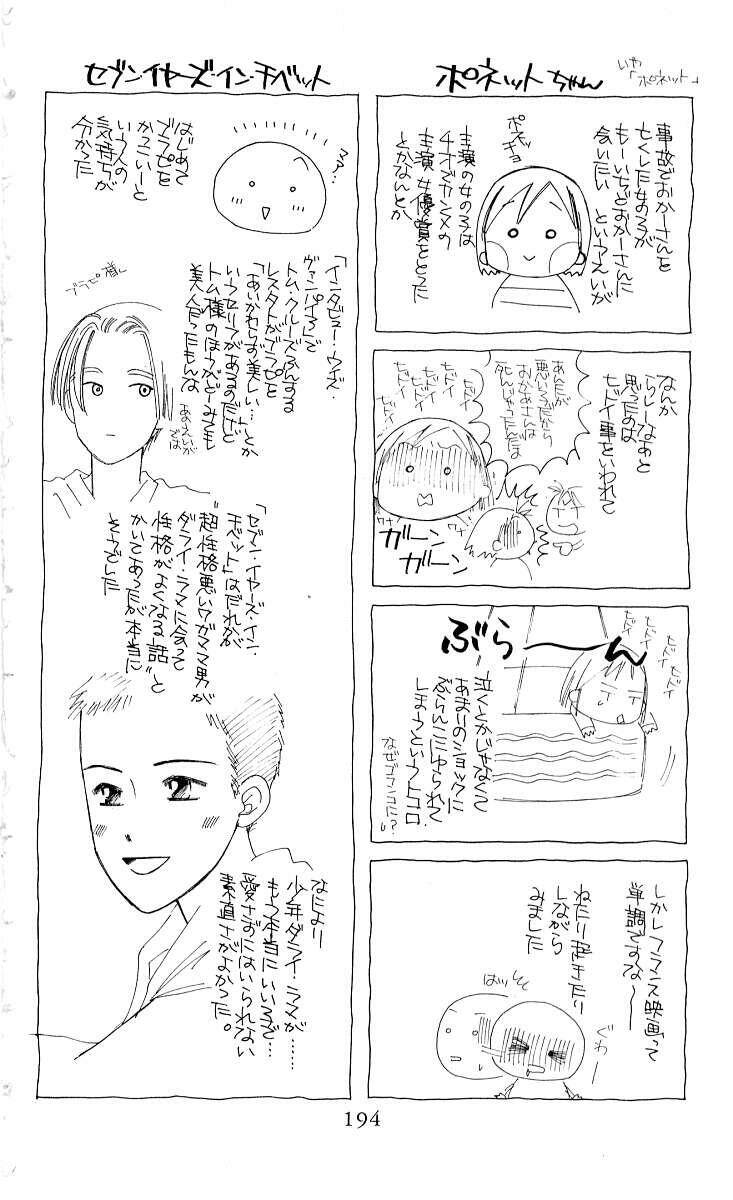 ポネットちゃん
いや
「ポネット」
事故でおかーさんを
亡くした女の子が
もーいちどおかーさんに
会いたい というえいが
ポネッ
チョ
主演の女の子は
4才でカンヌの
主演女優賞をとった
とかなんとか
なんか
らしーなぁと
思ったのは
ヒドイ事をいわれて
あんたが
悪いろだから
おかあさんは
死んじゃったんだは
ヒドイ
ヒドイ
ヒドイ
ヒドイ
ヒドイ
ワナ
ワナ
ガーン
ガーン
ぶらーん
ヒドイ
ヒドイ
ヒドイ
ヒドイ
泣くとかじゃなくて
あまりのショックに
ぶらんこにゆられて
しまうというトコロ.
なぜゴランコに?
しかしフランス映画って
単調ですな〜
ねたり起きたり
しながら
みました
ばッ
ぐわー
セブン・イヤーズ・イン・チベット
はじめて
ブラピを
かっこいーと
いう人の
気持ちが
分かった
「インタビュー・ウィズ・
ヴァンパイア」で
トム・クルーズふんする
レスタトがブラピを
「あいかわらず美しい…」とか
いうセリフがあるのだけど
トム様のほうがどーみても
美人だったもんな
あのえいが
では
ブラピ様
「セブン・イヤーズ・イン・
チベット」はだれかが
"超性格悪いワガママ男が
ダライ・ラマに会って
性格がよくなる話"と
かいてあったが本当に
そうでした
なにより
少年ダライ・ラマが……
もう本当にいい子で…
愛さずにはいられない
素直さがよかった。
194